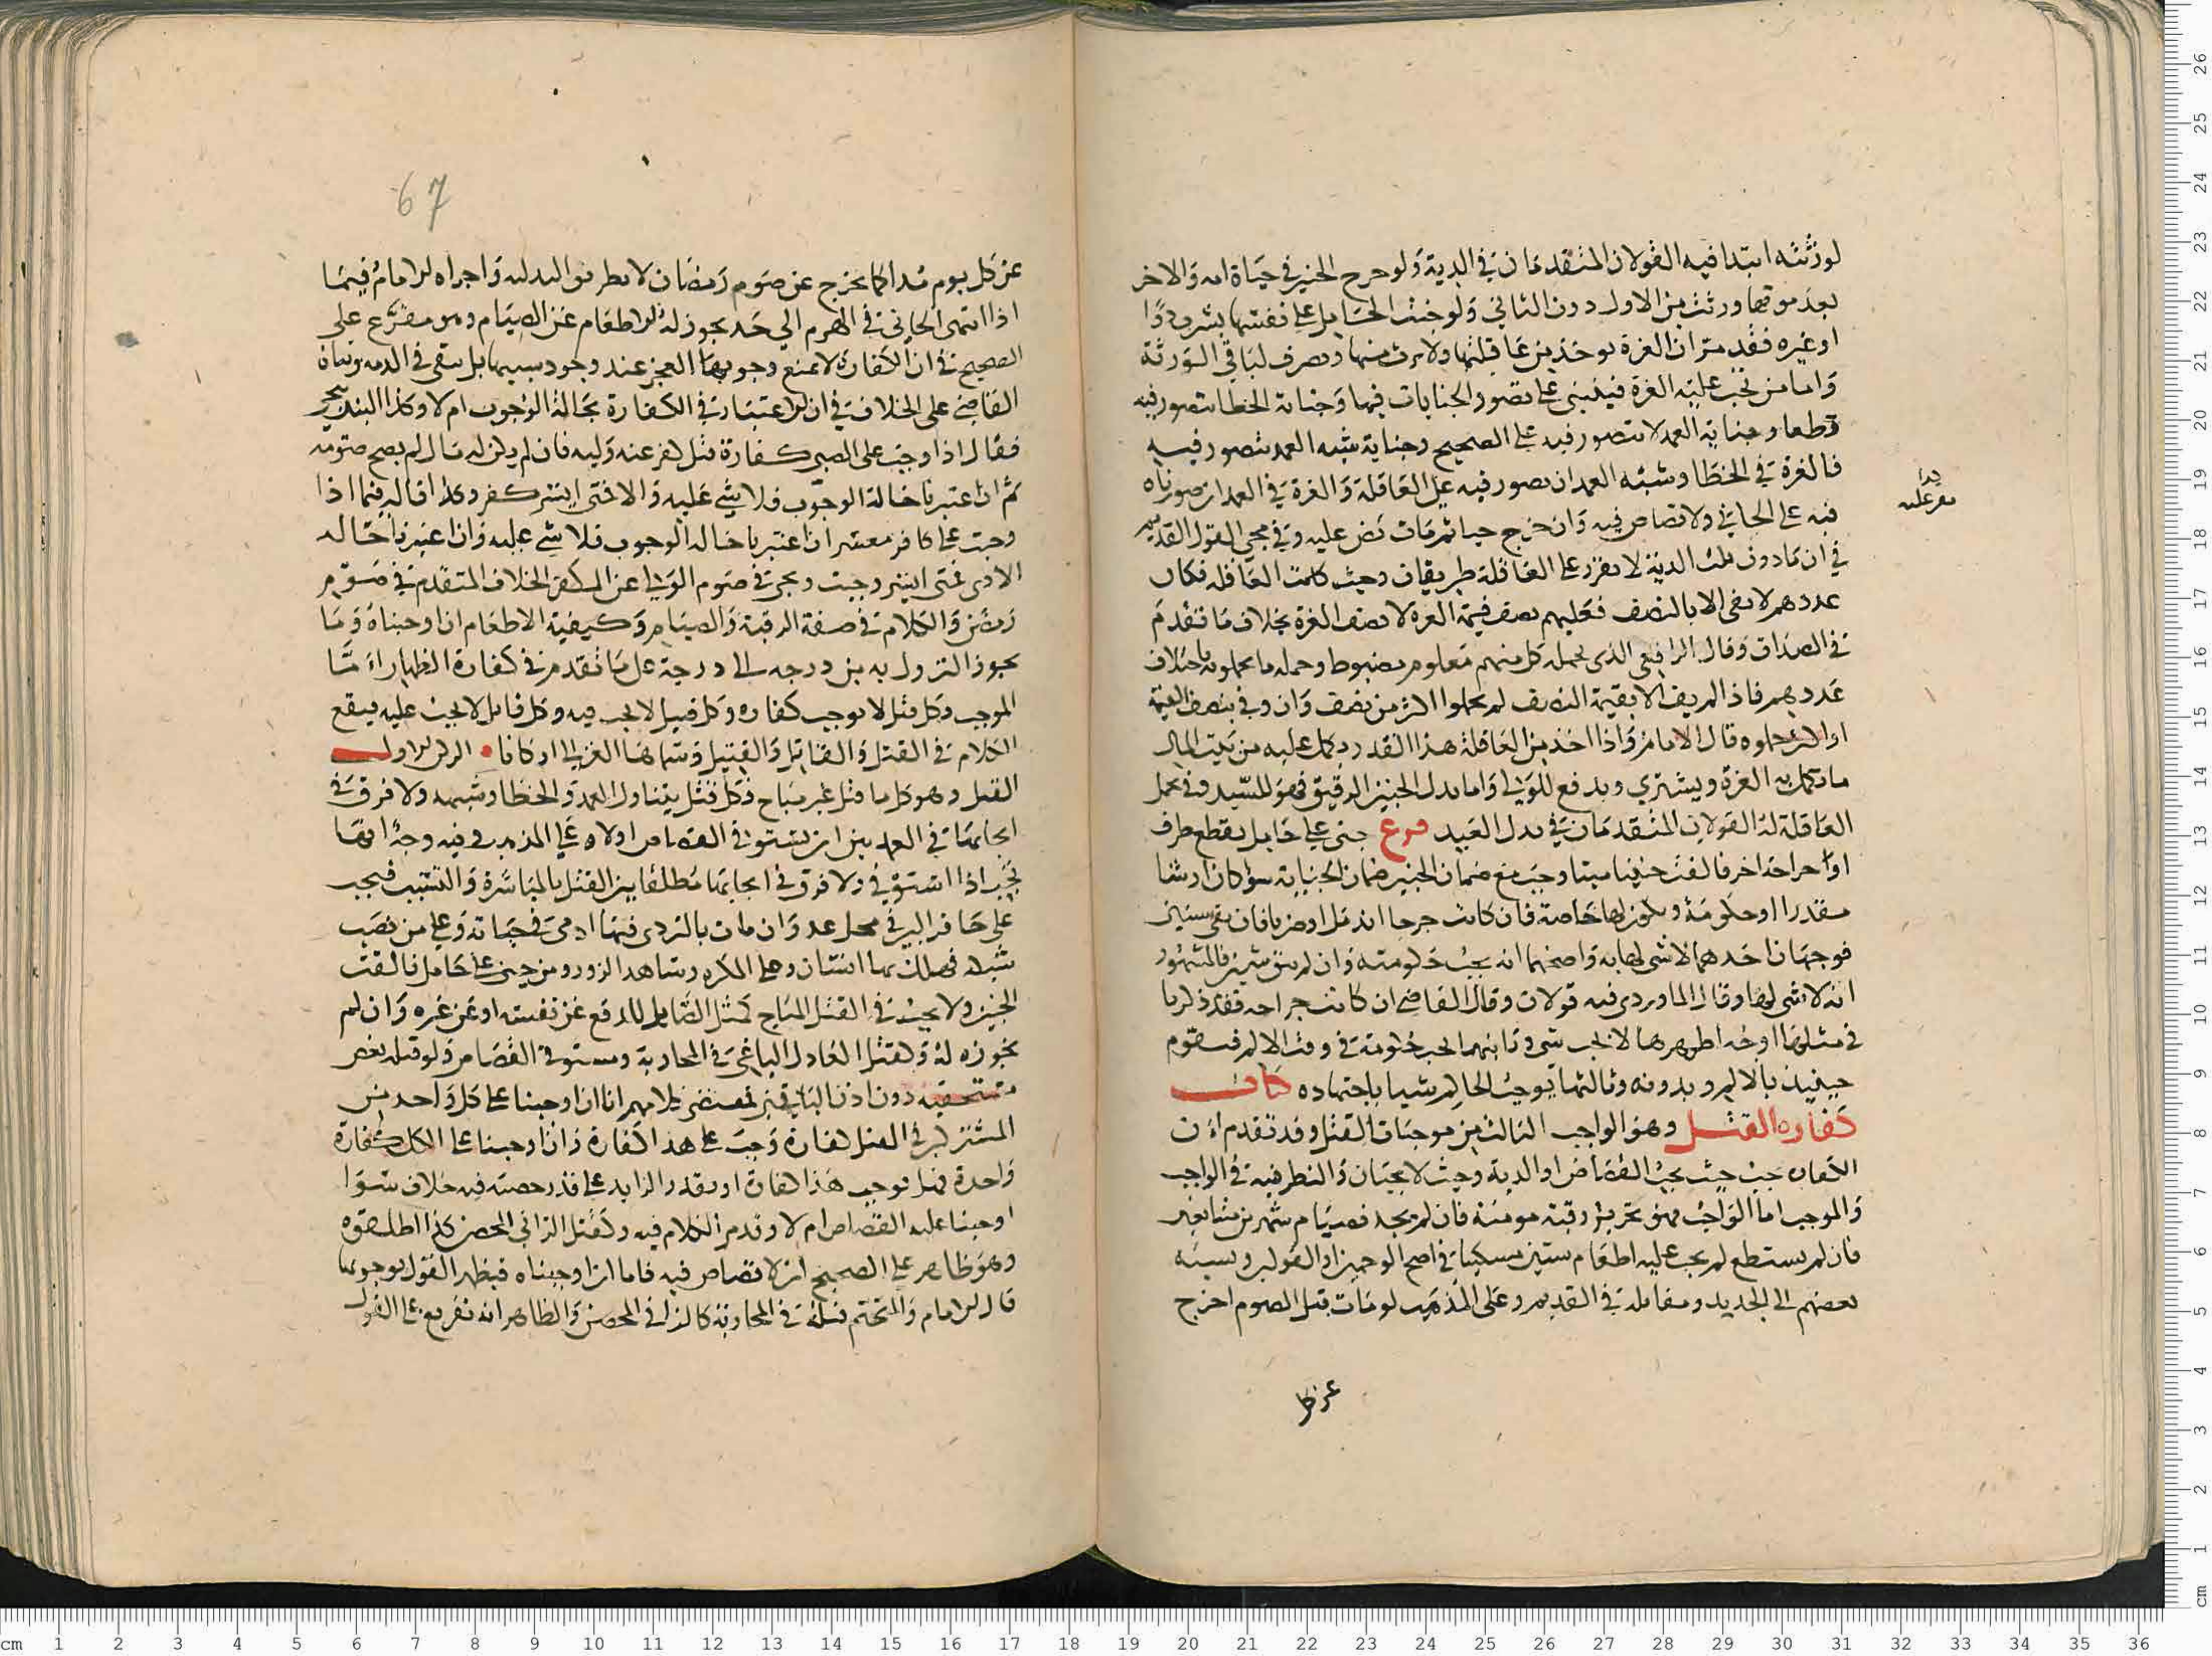 لورثته ابتدا فيه القولان المتقدمان في الدية ولو خرج الجنين في حياة امه والاخر
بعد موتها ورثت من الاول دون الثاني ولو جنت الحامل على نفسها بشرب دوا
او غيره فقد مر ان الغرة توخذ من عاقلتها ولا ترث منها وتصرف لباقي الورثة
واما من تجب عليه الغرة فينبني على تصور الجنايات فيها وجناية الخطا تتصور فيه
قطعا وجناية العمد لا تتصور فيه على الصحيح وجناية شبه العمد تتصور فيه
فالغرة في الخطا وشبه العمد ان تصور فيه على العاقلة والغرة في العمد ان صورناه
فيه على الجاني ولا قصاص فيه وان خرج حيا ثم مات نص عليه وفي مجي القول القديم
في ان مادون ثلث الدية لا تضرب على العاقلة طريقان وحيث كانت العاقلة فكان
عددهم لا يفي الا بالنصف فعليهم نصف قيمة الغرة لا نصف الغرة بخلاف ما تقدم
في الصداق وقال الرافعي الذي يحمله كل منهم معلوم مضبوط وجمله ما يحملونه باختلاف
عددهم فاذا لم يف الا بقيمة النصف لم يحملوا اكثر من نصف وان وفى بنصف القيمة
او اكثر حملوه قال الامام واذا اخذ من العاقلة هذا القدر ردكمل عليه من بيت المال
ما يكمل به الغرة ويشتري ويدفع للولي واما بدل الجنين الرقيق فهو للسيد وفي تحمل
العاقلة له القولان المتقدمان في بدل العبد فرع جنى على حامل بقطع طرف
او جراحة اخر فالقت جنينا ميتا وجب مع ضمان الجنين ضمان الجناية سوا كان ارشا
مقدرا او حكومة ويكون لها خاصة فان كانت جرحا اندمل او ضربا فان بقي شين
فوجهان احدهما لا شي لها به واصحهما انه يجب حكومته وان لم يبق شين فالمشهور
انه لا شي لها وقال الماوردي فيه قولان وقال القاضي ان كانت جراحه فقد ذكرنا
في مثلها اوجه اظهرها لا يجب شي وثانيهما يجب حكومة في وقت الالم فتقوم
حينيذ بالالم وبدونه وثالثها يوجب الحاكم شيا باجتهاده كتاب
كفارة القتل وهو الواجب الثالث من موجبات القتل وقد تقدم ان
الكفارة تجب حيث يجب القصاص او الدية وحيث لا يجبان والنظر فيه في الواجب
والموجب اما الواجب فهو تحرير رقبة مومنة فان لم يجد فصيام شهرين متتابعين
فان لم يستطع لم يجب عليه اطعام ستين مسكينا في اصح الوجهين او القولين ونسبه
بعضهم الى الجديد ومقابله في القديم وعلى المذهب لو مات قبل الصوم اخرج
عن كل
عن كل يوم مدا كما يخرج عن صوم رمضان لا بطريق البدليه واجراه الامام فيما
اذا انتهى الجاني في الهرم الى حد يجوز له الاطعام عن الصيام وهو مفرع على
الصحيح في ان الكفارة لا يمنع وجوبها العجز عند وجود سببها بل تبقى في الذمه وبناه
القاضي على الخلاف في ان الاعتبار في الكفارة بحالة الوجوب ام لا وكذا البندنيجي
فقال اذا وجبت على الصبي كفارة قتل كفر عنه وليه فان لم يكن له مال لم يصح صومه
ثم ان اعتبرنا حالة الوجوب فلا شي عليه والا فمتى ايسر كفر وكذا قاله فيما اذا
وجبت على كافر معسر ان اعتبرنا حاله الوجوب فلا شي عليه وان اعتبرنا حاله
الادى فمتى ايسر وجبت ويجرى في صوم الولي عن المكفر الخلاف المتقدم في صوم
رمضن والكلام في صفة الرقبة والصيام وكيفية الاطعام ان اوجبناه وما
يجوز النزول به من درجه الى درجة على ما تقدم في كفارة الظهار اما
الموجب فكل قتل لا يوجب كفارة وكل قتيل لا يجب فيه وكل قاتل لا يجب عليه فيقع
الكلام في القتل والقاتل والقتيل وسماها الغزالي اركانا • الركن الاول
القتل وهو كل ما قتل غير مباح فكل قتل يتناول العمد والخطا وشبهه ولا فرق في
ايجابها في العمد بين ان يستوفى القصاص او لا على المذهب وفيه وجه انها
تجب اذا استوفي ولا فرق في ايجابها مطلقا بين القتل بالمباشرة والتسبب فيجب
على حافر البير في محل عد وان مات بالتردي فيها ادمي في حياته وعلى من نصب
شبكه فهلك بها انسان وعلى المكره وشاهد الزور ومن جنى على حامل فالقت
الجنين ولا يجب في القتل المباح كقتل الصايل للدفع عن نفسه او عن غيره وان لم
يجوزه له وكقتل العادل الباغي في المحاربة ومستوفى القصاص ولو قتله بعض
مستحقيه دون اذن الباقين فمقتضى كلامهم انا اذا اوجبنا على كل واحد من
المشتركين في القتل كفارة وجبت على هذا كفارة وان اوجبنا على الكل كفارة
واحدة فهل نوجب هذا كفارة او بقدر الزايد على قدر حصته فيه خلاف سوا
اوجبنا عليه القصاص ام لا وقدمر الكلام فيه وكقتل الزاني المحصن كذا اطلقوه
وهو ظاهر على الصحيح ان لا قصاص فيه فاما ان اوجبناه فيظهر القول بوجوبها
قال الامام والمتحتم قتله في المحاربة كالزاني المحصن والظاهر انه تفريع على القول
67